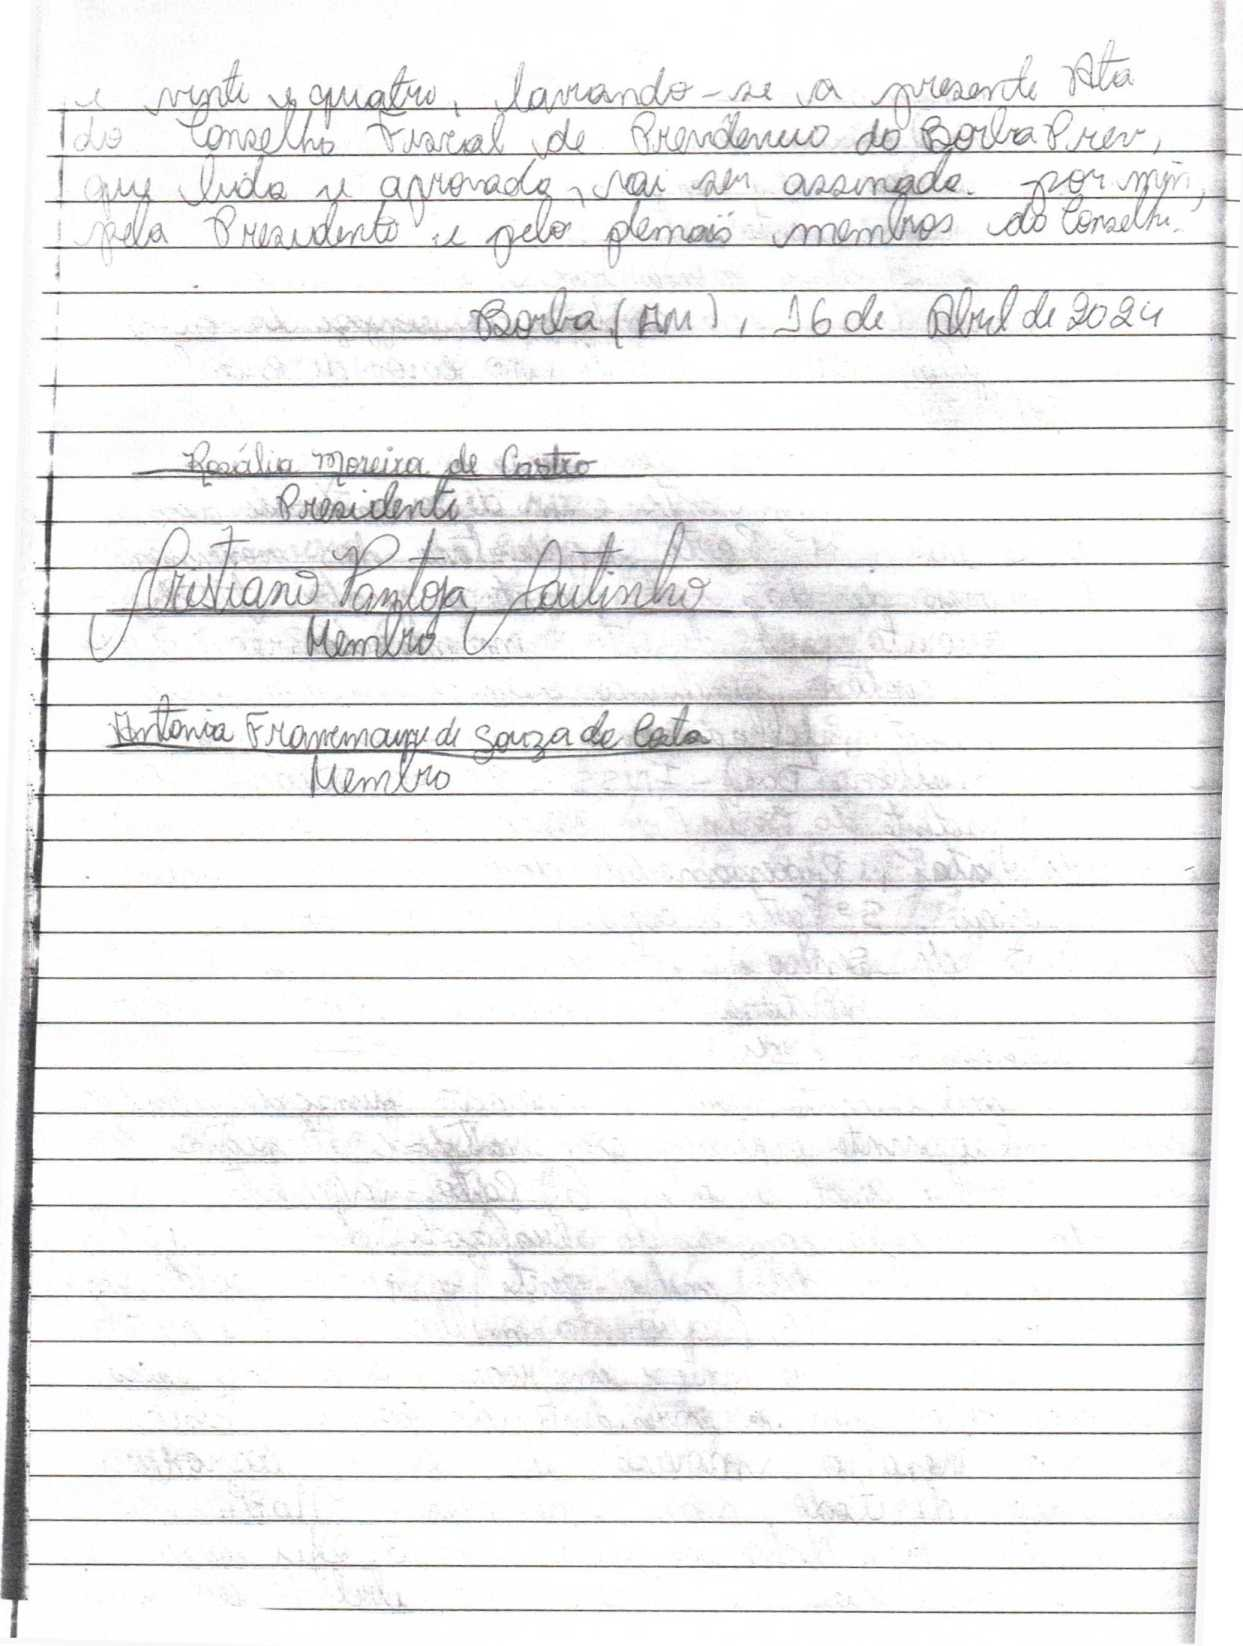 e vinte e quatro, lavrando-se a presente Ata
do Conselho Fiscal de Previdencia do BorbaPrev,
que lida e aprovada, vai ser assinada por mim,
pela Presidente e pelo demais membros do Conselho.
Borba (AM), 16 de Abril de 2024
Rosália Moreira de Castro
Presidente
Cristiano Pantoja Coutinho
Membro
Antonia de Souza da
Membro